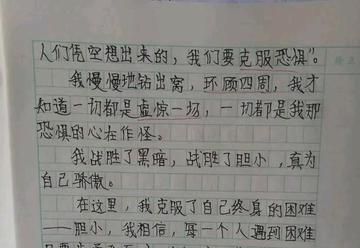 人们凭空想出来的，我们要克服恐惧”。
我慢慢地钻出窝，环顾四周，我才
知道一切都是虚惊一场，一切都是我那
恐惧的心在作怪。
我战胜了黑暗，战胜了胆小，真为
自己骄傲。
在这里，我克服了自己终身的困难
——胆小，我相信，每一个人遇到困难